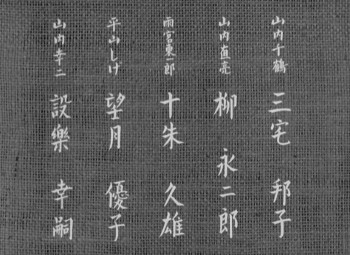 山内千鶴 三宅 邦子
山内直亮 柳 永二郎
雨宮東一郎 十朱 久雄
平山しげ 望月 優子
山内幸二 設樂 幸嗣